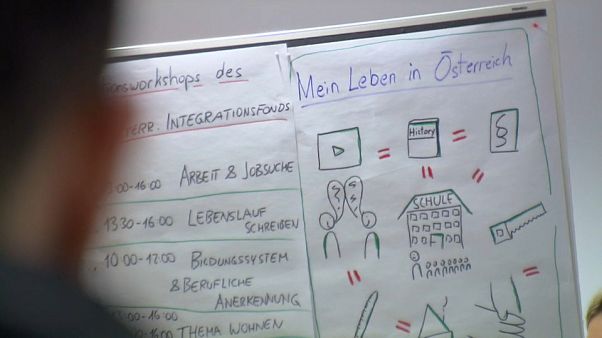 des
INTEGRATIONSFONDS
ARBEIT & JOBSUCHE
13:30-16:00 LEBENSLAUF
SCHREIBEN
10:00-12:00 BILDUNGSSYSTEM
& BERUFLICHE
ANERKENNUNG
THEMA WOHNEN
Mein Leben in Österreich
History
§
SCHULE